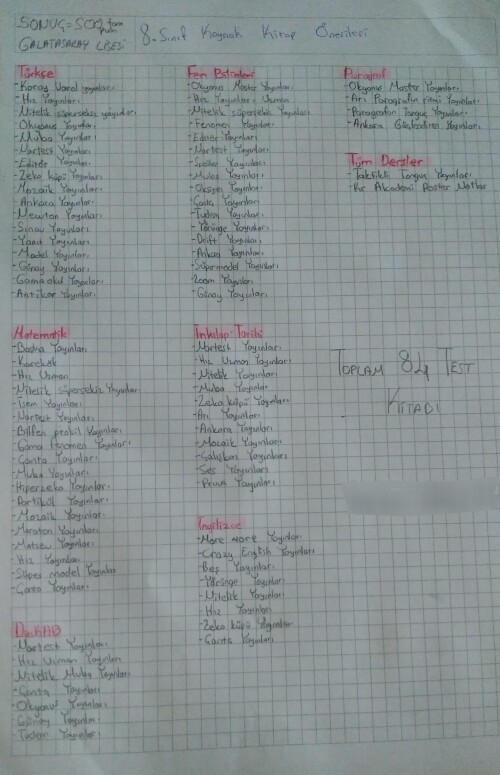 SONUÇ=500 tam puan
GALATASARAY LİSESİ
8. Sınıf Kaynak Kitap Önerileri
Türkçe
- Koray Varol yayınları
- Hız Yayınları
- Nitelik süpersekiz yayınları
- Okyanus Yayınları
- Muba Yayınları
- Martest Yayınları
- Editör Yayınları
- Zeka küpü Yayınları
- Mozaik Yayınları
- Ankara Yayınları
- Newton Yayınları
- Sınav Yayınları
- Yanıt Yayınları
- Model Yayınları
- Günay Yayınları
- Gama okul Yayınları
- Antikor Yayınları
Fen Bilimleri
- Okyanus Master Yayınları
- Hız Yayınları Uzman
- Nitelik süpersekiz Yayınları
- Fenomen Yayınları
- Editör Yayınları
- Martest Yayınları
- Yayınları
- Muba Yayınları
- Oksijen Yayınları
- Çanta Yayınları
- Tudem Yayınları
- Yörünge Yayınları
- Drift Yayınları
- Ankara Yayınları
- Süpermodel Yayınları
- Zoom Yayınları
- Günay Yayınları
Paragraf
- Okyanus Master Yayınları
- Arı Paragrafın ritmi Yayınları
- Paragrafın Tonguç Yayınları
- Ankara Güçlendiren Yayınları
Tüm Dersler
- Taktikli Tonguç Yayınları
- Kr Akademi Poster Notlar
Matematik
- Yayınları
- Karekök
- Hız Uzman
- Nitelik süpersekiz Yayınları
- İsem Yayınları
- Martest Yayınları
- Bilfen probil Yayınları
- Gama fenomen Yayınları
- Çanta Yayınları
- Muba Yayınları
- Hiperzeka Yayınları
- Partikül Yayınları
- Mozaik Yayınları
- Maraton Yayınları
- Matsev Yayınları
- Hız Yayınları
- Süper model Yayınları
- Yayınları
İnkılap Tarihi
- Martest Yayınları
- Hız Uzman Yayınları
- Nitelik Yayınları
- Muba Yayınları
- Zeka küpü Yayınları
- Arı Yayınları
- Ankara Yayınları
- Mozaik Yayınları
- Çalışkan Yayınları
- Ses Yayınları
- Yayınları
TOPLAM 84 TEST
KİTABI
İngilizce
- More more Yayınları
- Crazy English Yayınları
- Beş Yayınları
- Yörünge Yayınları
- Nitelik Yayınları
- Hız Yayınları
- Zeka küpü Yayınları
- Çanta Yayınları
Din KAB
- Martest Yayınları
- Hız Uzman Yayınları
- Nitelik Muba Yayınları
- Çanta Yayınları
- Okyanus Yayınları
- Günay Yayınları
- Tudem Yayınları